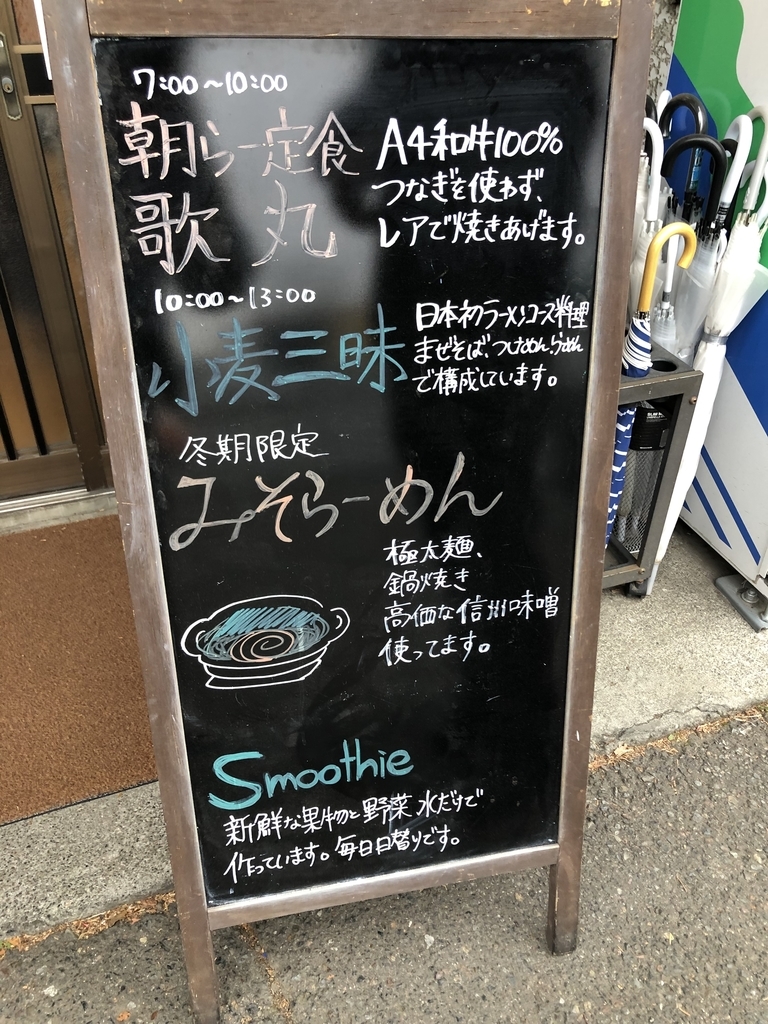 7:00〜10:00
朝らー定食
歌丸
A4和牛100%
つなぎを使わず、
レアで焼きあげます。
10:00〜13:00
小麦三昧
日本初ラーメンコース料理
まぜそば、つけめん、らーめん
で構成しています。
冬期限定
みそらーめん
極太麺、
鍋焼き
高価な信州味噌
使ってます。
Smoothie
新鮮な果物と野菜 水だけで
作っています。毎日日替りです。